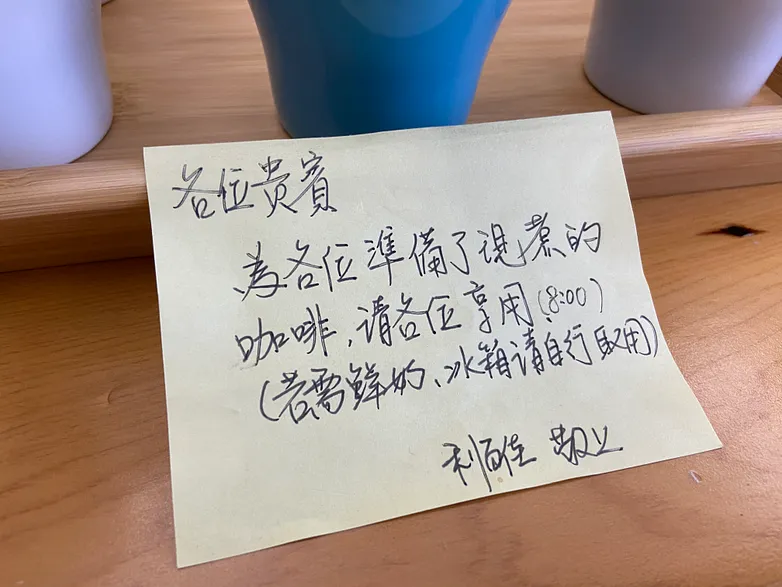 各位贵賓
為各位準備了現煮的
咖啡,請各位享用(8:00)
(若需鮮奶、冰箱請自行取用)
利百佳 敬上